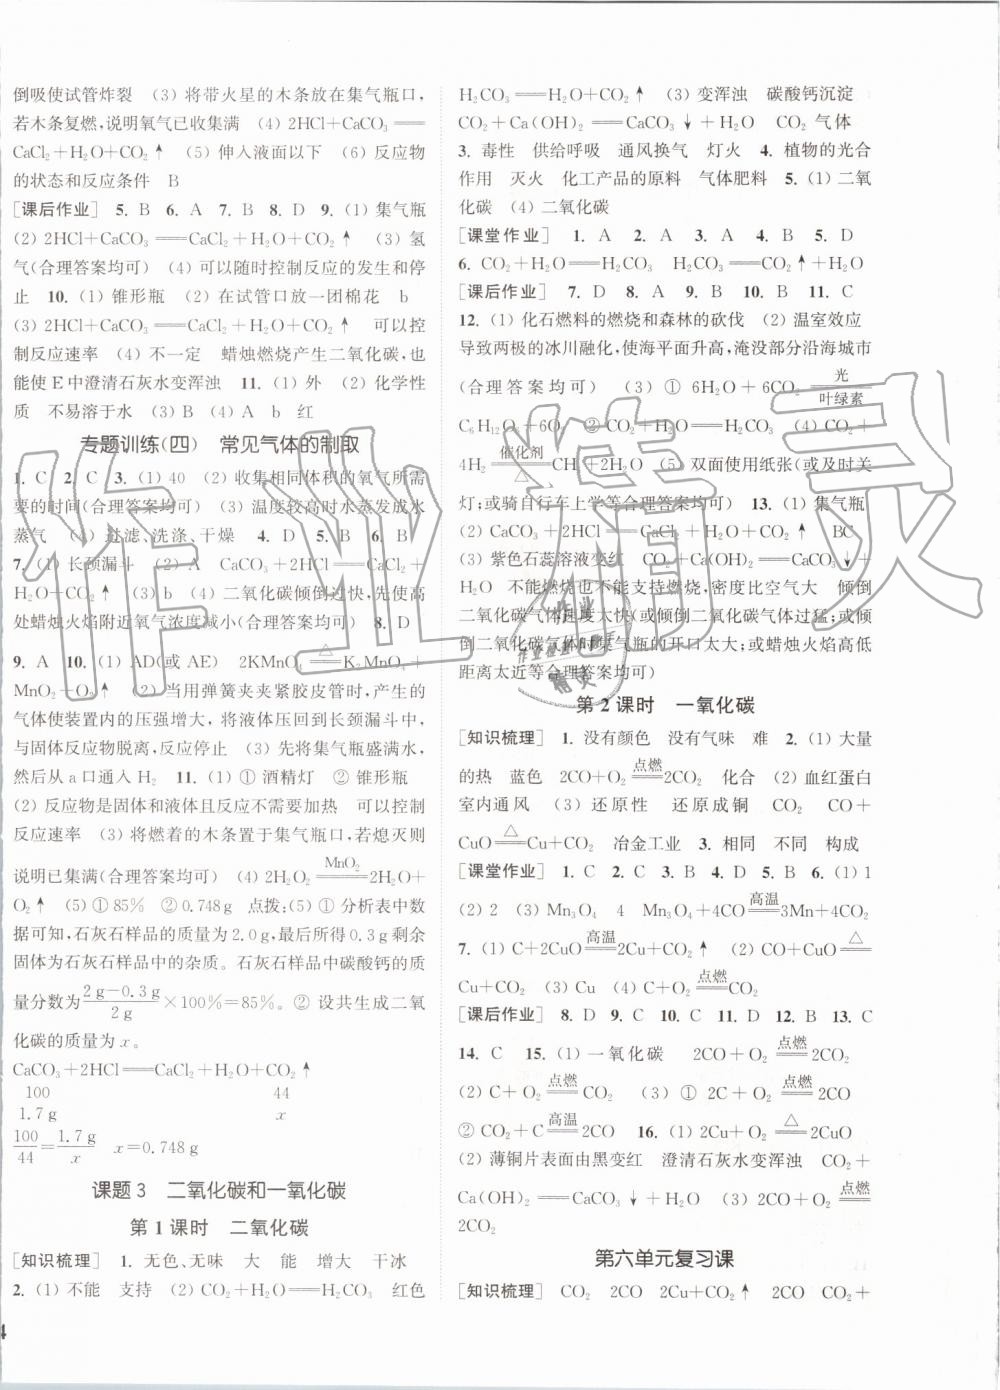 倒吸使试管炸裂 (3) 将带火星的木条放在集气瓶口,
若木条复燃,说明氧气已收集满 (4) 2HCl+CaCO₃══
CaCl₂+H₂O+CO₂↑ (5) 伸入液面以下 (6) 反应物
的状态和反应条件 B
[课后作业] 5. B 6. A 7. B 8. D 9. (1) 集气瓶
(2) 2HCl+CaCO₃══CaCl₂+H₂O+CO₂↑ (3) 氢
气(合理答案均可) (4) 可以随时控制反应的发生和停
止 10. (1) 锥形瓶 (2) 在试管口放一团棉花 b
(3) 2HCl+CaCO₃══CaCl₂+H₂O+CO₂↑ 可以控
制反应速率 (4) 不一定 蜡烛燃烧产生二氧化碳,也
能使E中澄清石灰水变浑浊 11. (1) 外 (2) 化学性
质 不易溶于水 (3) B (4) A b 红
专题训练(四) 常见气体的制取
1. C 2. C 3. (1) 40 (2) 收集相同体积的氧气所需
要的时间(合理答案均可) (3) 温度较高时水蒸发成水
蒸气 (4) 过滤、洗涤、干燥 4. D 5. B 6. B
7. (1) 长颈漏斗 (2) A CaCO₃+2HCl══CaCl₂+
H₂O+CO₂↑ (3) b (4) 二氧化碳倾倒过快,先使高
处蜡烛火焰附近氧气浓度减小(合理答案均可) 8. D
9. A 10. (1) AD(或 AE) 2KMnO₄ △══ K₂MnO₄+
MnO₂+O₂↑ (2) 当用弹簧夹夹紧胶皮管时,产生的
气体使装置内的压强增大,将液体压回到长颈漏斗中,
与固体反应物脱离,反应停止 (3) 先将集气瓶盛满水,
然后从a口通入H₂ 11. (1) ① 酒精灯 ② 锥形瓶
(2) 反应物是固体和液体且反应不需要加热 可以控制
反应速率 (3) 将燃着的木条置于集气瓶口,若熄灭则
说明已集满(合理答案均可) (4) 2H₂O₂ MnO₂══ 2H₂O+
O₂↑ (5) ① 85% ② 0.748 g 点拨:(5) ① 分析表中数
据可知,石灰石样品的质量为2.0 g,最后所得0.3 g剩余
固体为石灰石样品中的杂质。石灰石样品中碳酸钙的质
量分数为 (2 g−0.3 g)/2 g ×100%=85%。② 设共生成二氧
化碳的质量为 x。
CaCO₃+2HCl══CaCl₂+H₂O+CO₂↑
100 44
1.7 g x
100/44=1.7 g/x x=0.748 g
课题3 二氧化碳和一氧化碳
第1课时 二氧化碳
[知识梳理] 1. 无色、无味 大 能 增大 干冰
2. (1) 不能 支持 (2) CO₂+H₂O══H₂CO₃ 红色
H₂CO₃══H₂O+CO₂↑ (3) 变浑浊 碳酸钙沉淀
CO₂+Ca(OH)₂══CaCO₃↓+H₂O CO₂ 气体
3. 毒性 供给呼吸 通风换气 灯火 4. 植物的光合
作用 灭火 化工产品的原料 气体肥料 5. (1) 二氧
化碳 (4) 二氧化碳
[课堂作业] 1. A 2. A 3. A 4. B 5. D
6. CO₂+H₂O══H₂CO₃ H₂CO₃══CO₂↑+H₂O
[课后作业] 7. D 8. A 9. B 10. B 11. C
12. (1) 化石燃料的燃烧和森林的砍伐 (2) 温室效应
导致两极的冰川融化,使海平面升高,淹没部分沿海城市
(合理答案均可) (3) ① 6H₂O+6CO₂ 光══叶绿素
C₆H₁₂O₆+6O₂ (4) CO₂+
4H₂ 催化剂══ CH₄+2H₂O (5) 双面使用纸张(或及时关
灯;或骑自行车上学等合理答案均可) 13. (1) 集气瓶
(2) CaCO₃+2HCl══CaCl₂+H₂O+CO₂↑ BC
(3) 紫色石蕊溶液变红 CO₂+Ca(OH)₂══CaCO₃↓+
H₂O 不能燃烧也不能支持燃烧,密度比空气大 倾倒
二氧化碳气体速度太快(或倾倒二氧化碳气体过猛;或倾
倒二氧化碳气体时集气瓶的开口太大;或蜡烛火焰高低
距离太近等合理答案均可)
第2课时 一氧化碳
[知识梳理] 1. 没有颜色 没有气味 难 2. (1) 大量
的热 蓝色 2CO+O₂ 点燃══ 2CO₂ 化合 (2) 血红蛋白
室内通风 (3) 还原性 还原成铜 CO₂ CO+
CuO △══ Cu+CO₂ 冶金工业 3. 相同 不同 构成
[课堂作业] 1. C 2. C 3. B 4. D 5. B 6. (1) 1
(2) 2 (3) Mn₃O₄ 4 Mn₃O₄+4CO 高温══ 3Mn+4CO₂
7. (1) C+2CuO 高温══ 2Cu+CO₂↑ (2) CO+CuO △══
Cu+CO₂ (3) Cu (4) C+O₂ 点燃══ CO₂
[课后作业] 8. D 9. C 10. C 11. D 12. B 13. C
14. C 15. (1) 一氧化碳 2CO+O₂ 点燃══ 2CO₂
(2) C+O₂ 点燃══ CO₂ (3) ① 2C+O₂ 点燃══ 2CO
② CO₂+C 高温══ 2CO 16. (1) 2Cu+O₂ △══ 2CuO
(2) 薄铜片表面由黑变红 澄清石灰水变浑浊 CO₂+
Ca(OH)₂══CaCO₃↓+H₂O (3) 2CO+O₂ 点燃══
2CO₂
第六单元复习课
[知识梳理] CO₂ 2CO 2Cu+CO₂↑ CO₂ CO₂+
4
作业精灵